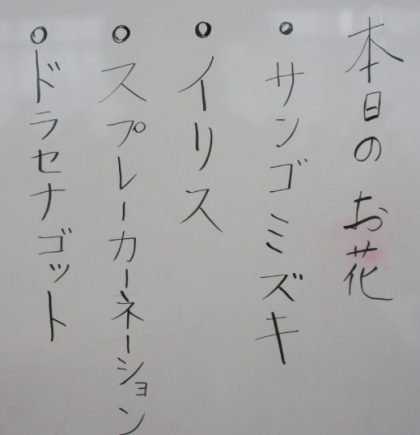 本日のお花
○サンゴミズキ
○イリス
○スプレーカーネーション
○ドラセナゴット